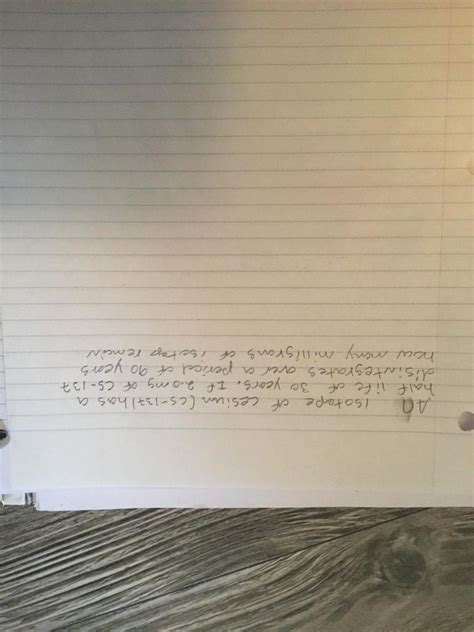 An
isotope of cesium (cs-137) has a
half life of 30 years. If 2.0mg of CS-137
disintegrates over a period of 90 years
how many milligrams of isotop remain